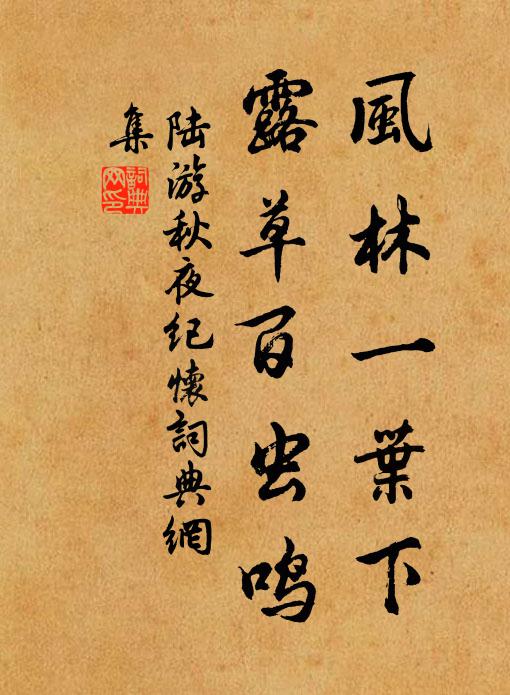 風林一葉下
露草百虫鳴
陆游秋夜纪懷詞典網
集
詞典網印